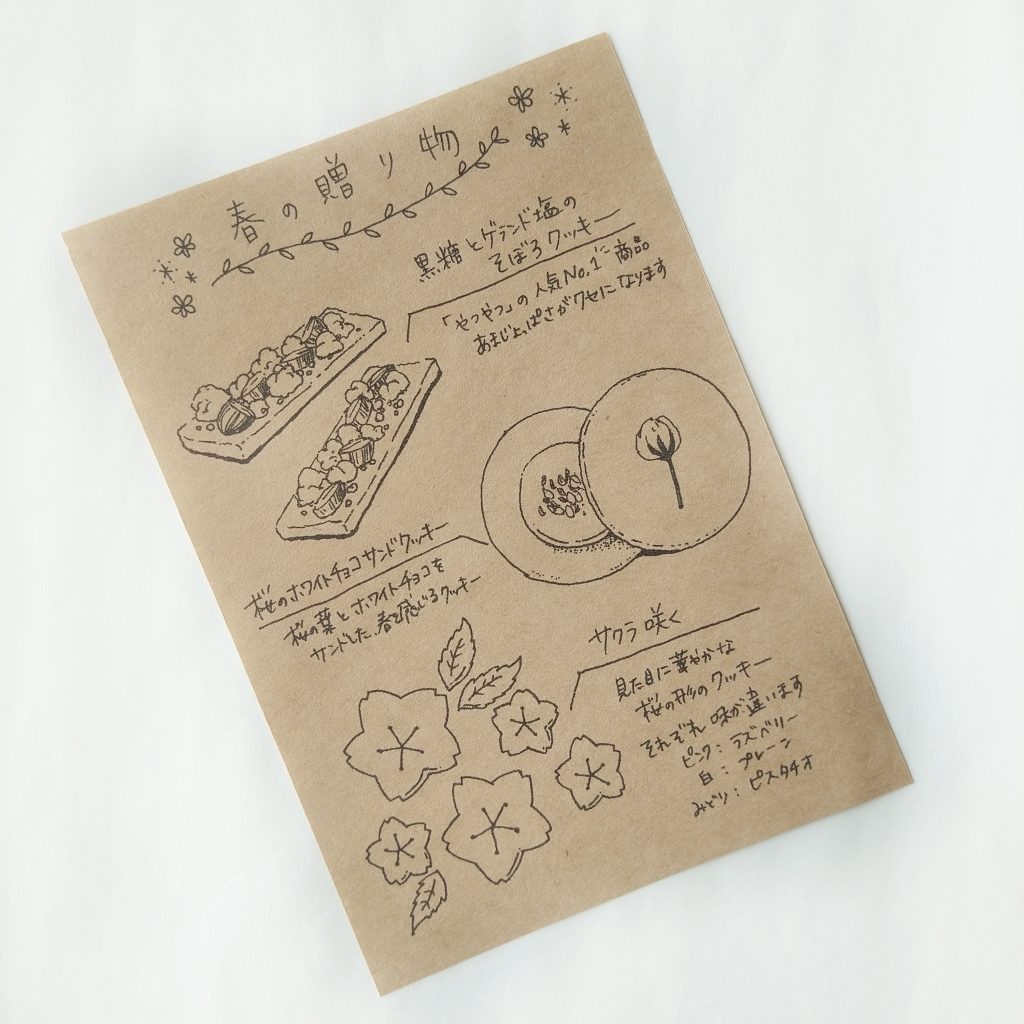 春の贈り物
黒糖とゲランド塩の
そぼろクッキー
「やつやつ」の人気No.1に商品
あまじょっぱさがクセになります
桜のホワイトチョコサンドクッキー
桜の葉とホワイトチョコを
サンドした、春を感じるクッキー
サクラ咲く
見た目に華やかな
桜の形のクッキー
それぞれ味が違います
ピンク：ラズベリー
白：プレーン
みどり：ピスタチオ